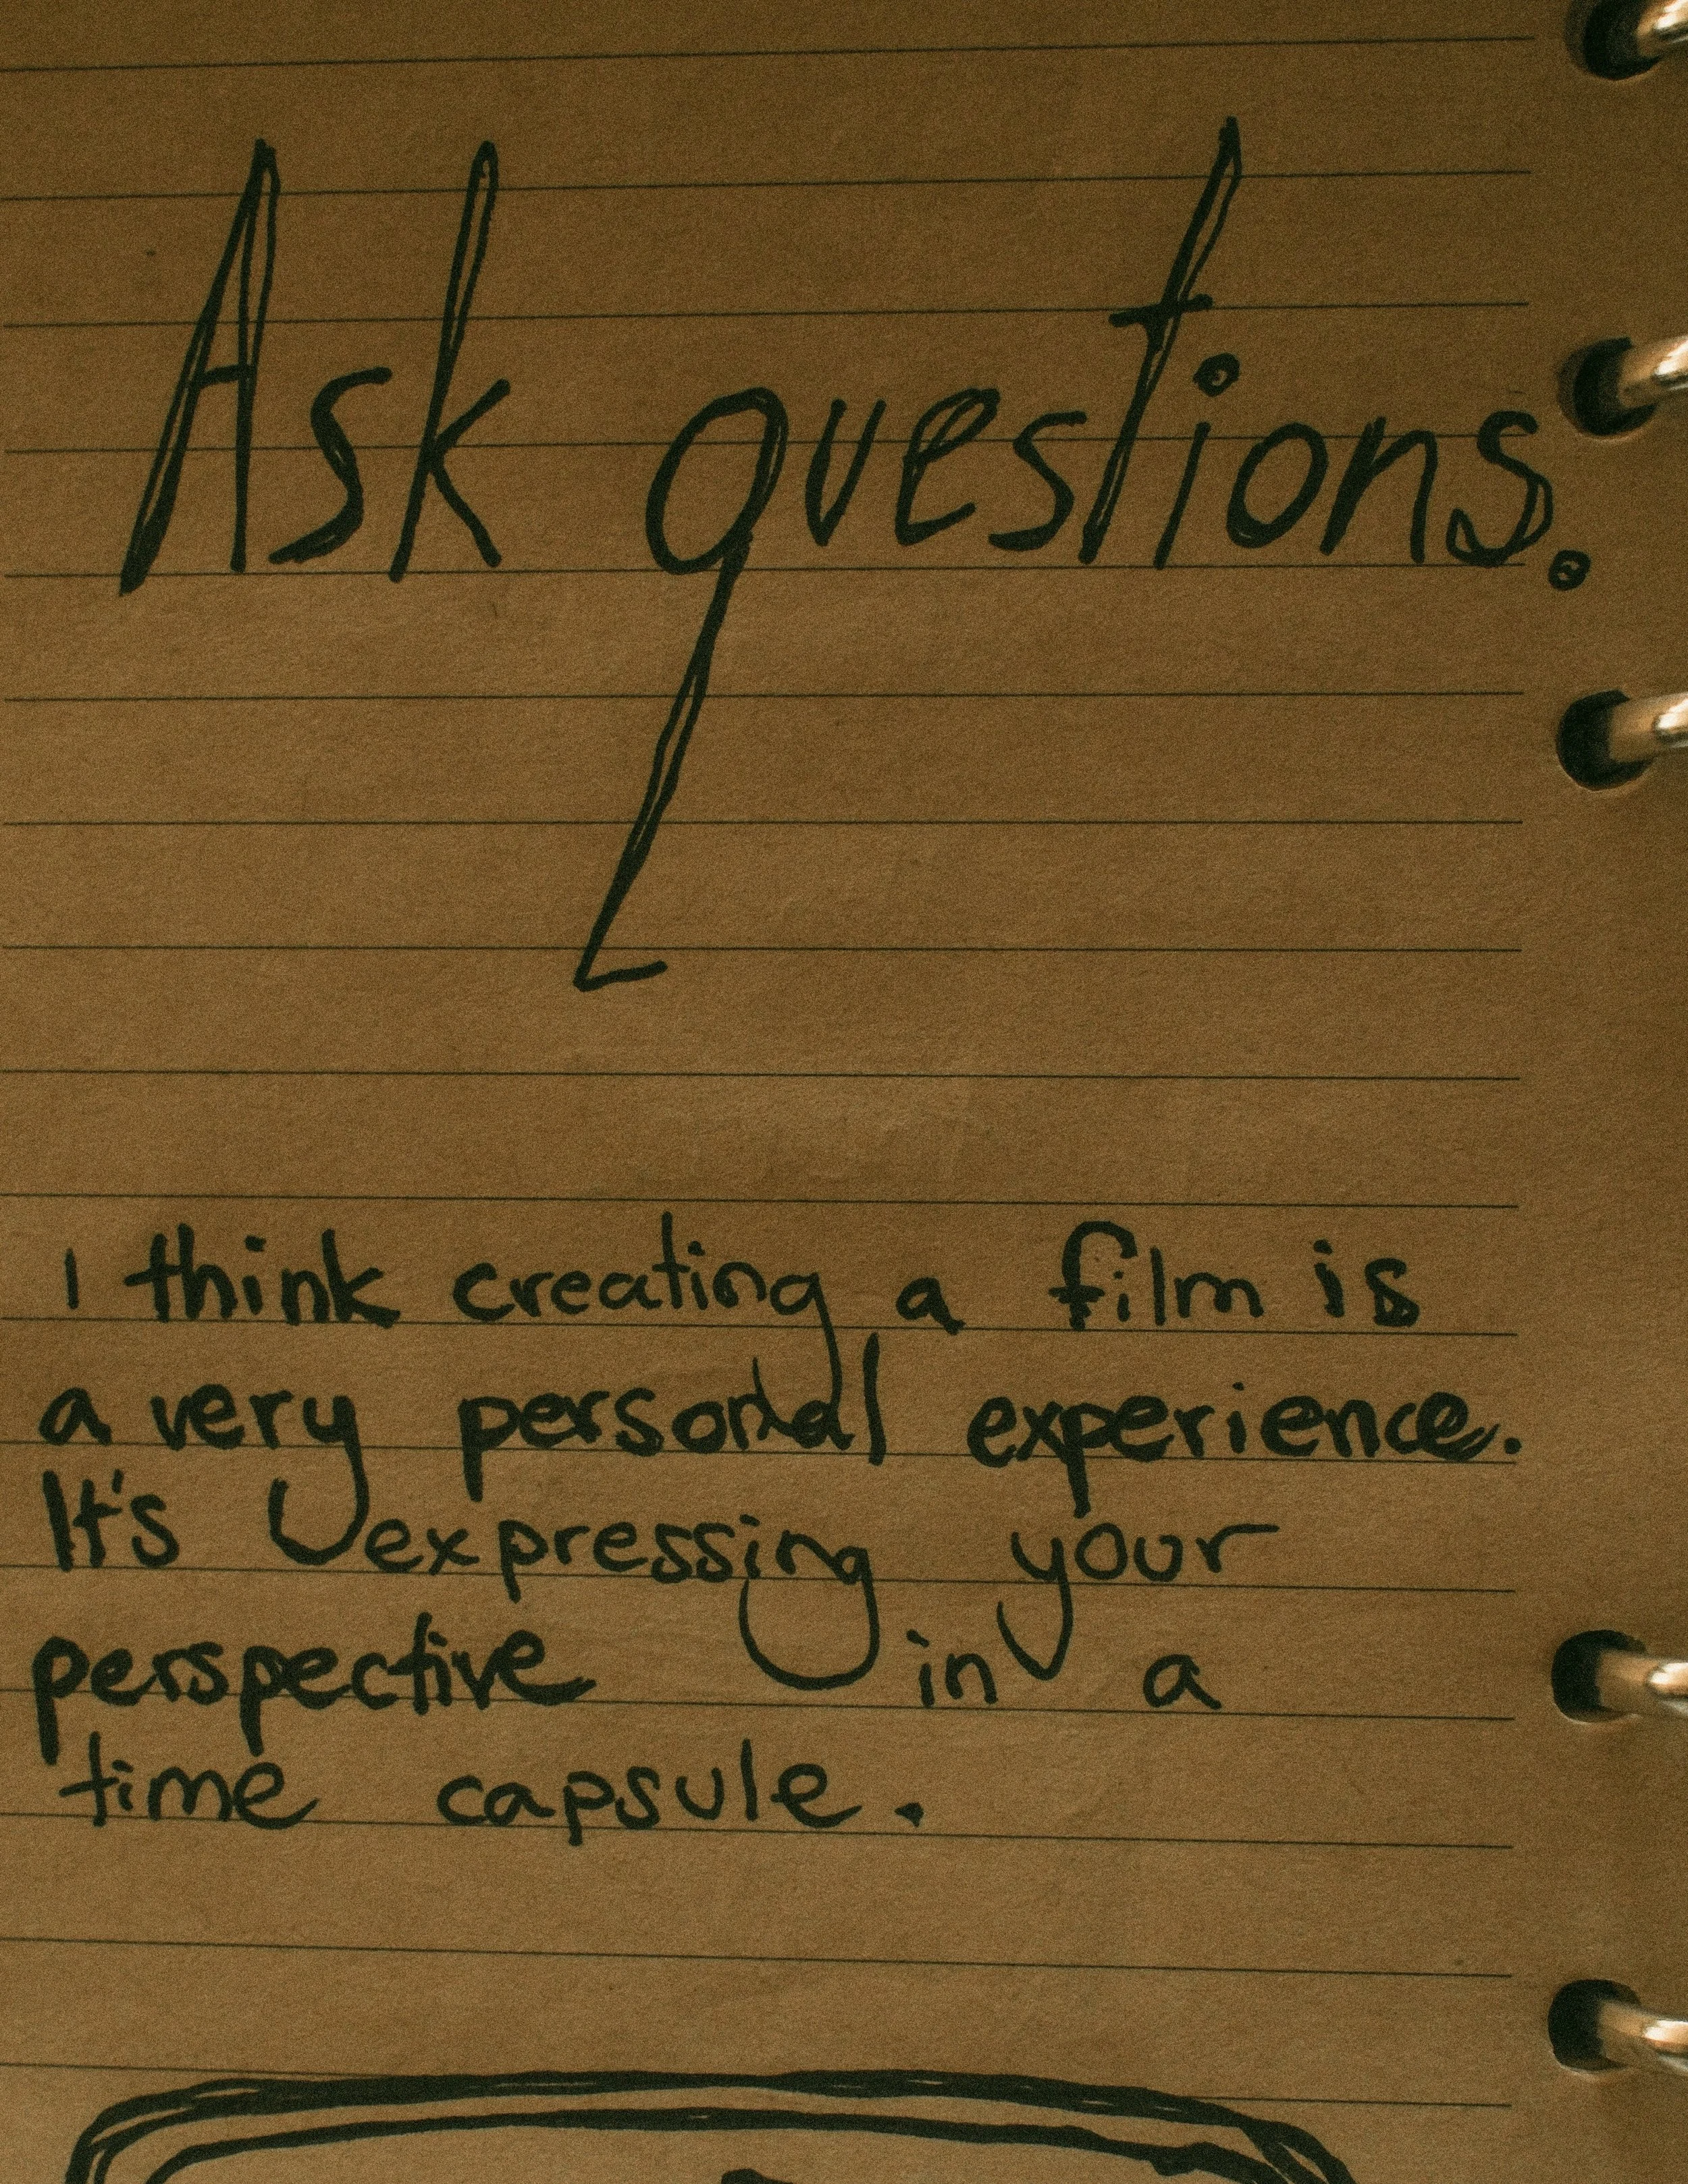 Ask questions.
I think creating a film is
a very personal experience.
It's expressing your
perspective in a
time capsule.